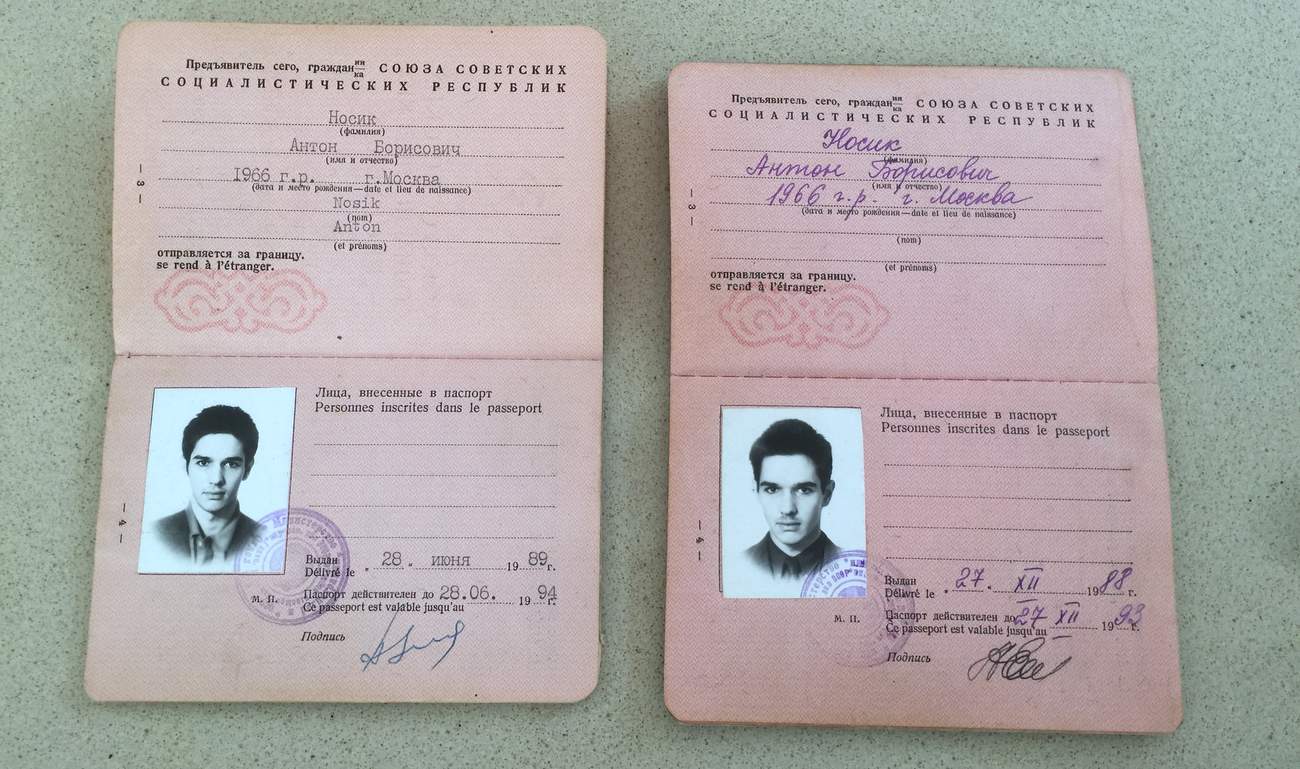 Предъявитель сего, граждан ин ка СОЮЗА СОВЕТСКИХ
СОЦИАЛИСТИЧЕСКИХ РЕСПУБЛИК
Носик
(фамилия)
Антон Борисович
(имя и отчество)
1966 г.р. г.Москва
(дата и место рождения—date et lieu de naissance)
Nosik
(nom)
Anton
(et prénoms)
отправляется за границу.
se rend à l'étranger.
— 3 —
Лица, внесенные в паспорт
Personnes inscrites dans le passeport
— 4 —
Министерство
Выдан
Délivré le " 28. июня 19 89 г.
М. П.
Паспорт действителен до 28.06. 19 94 г.
Ce passeport est valable jusqu'au
Подпись
Предъявитель сего, граждан ин ка СОЮЗА СОВЕТСКИХ
СОЦИАЛИСТИЧЕСКИХ РЕСПУБЛИК
Носик
(фамилия)
Антон Борисович
(имя и отчество)
1966 г.р. г. Москва
(дата и место рождения—date et lieu de naissance)
(nom)
(et prénoms)
отправляется за границу.
se rend à l'étranger.
— 3 —
Лица, внесенные в паспорт
Personnes inscrites dans le passeport
— 4 —
Выдан
Délivré le " 27. XII 19 88 г.
М. П.
Паспорт действителен до 27 XII 19 93 г.
Ce passeport est valable jusqu'au
Подпись